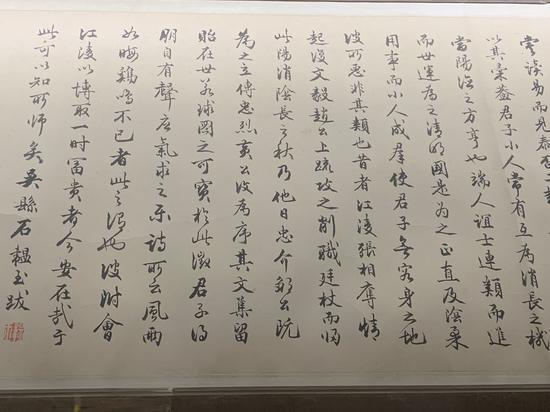 嘗讀易而見泰否
君子小人常有互為消長之機
當陽德之方亨也端人誼士連類而進
而世運為之清明國是為之正直及陰柔
用事而小人成群使君子無容身之地
彼所惡非其類也昔者江陵張相奪情
起復文毅趙公上疏攻之削職廷杖而歸
此陽消陰長之秋乃他日忠介鄒公既
為之立傳忠烈黃公復為序其文集留
貽在世若球圖之可寶於此徵君子得
朋自有聲應氣求之樂詩所云風雨
如晦鷄鳴不已者此之謂也彼附會
江陵以博取一時富貴者今安在哉于
此可以知所師矣吳縣石韞玉跋